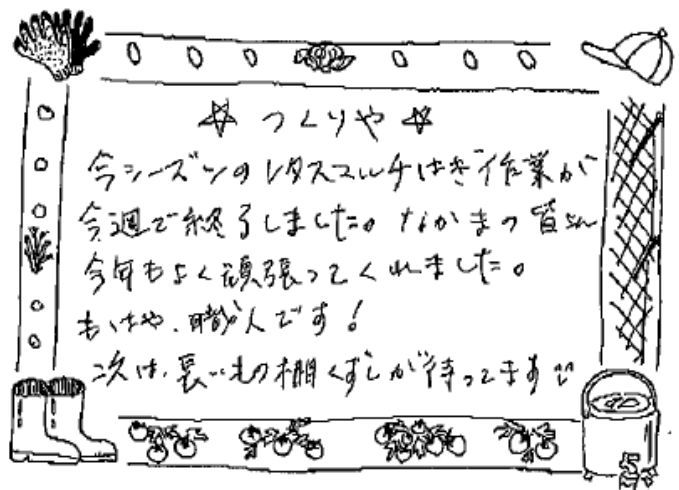 ☆ つくりや ☆
今シーズンのレタスマルチはぎ作業が
今週で終了しました。なかまの皆さん
今年もよく頑張ってくれました。
もはや、職人です!
次は、長いもの棚くずしが待ってます